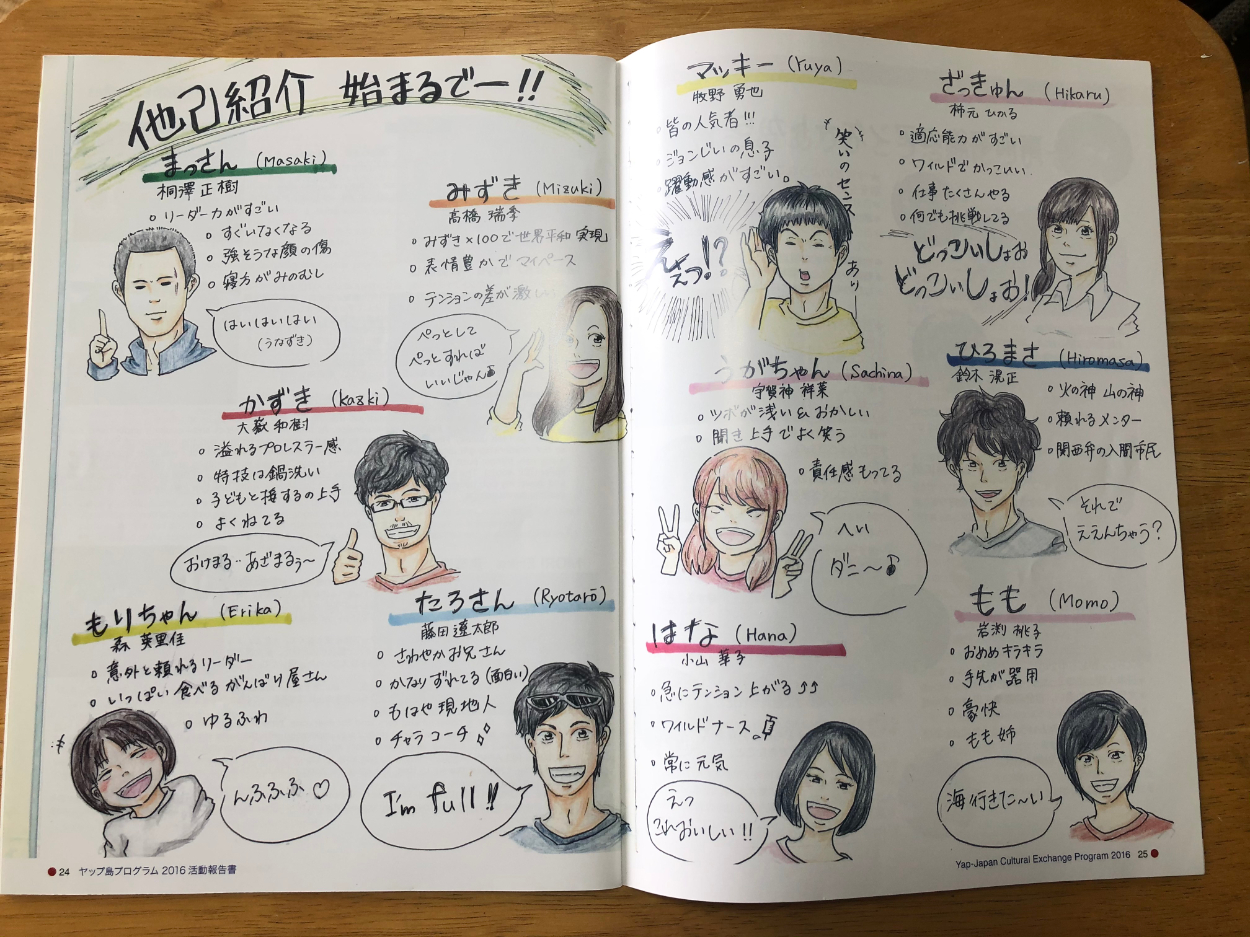 他己紹介 始まるでー!!
まっさん (Masaki)
桐澤 正樹
• リーダー力がすごい
• すぐいなくなる
• 強そうな顔の傷
• 寝方がみのむし
はいはいはい
(うなずき)
みずき (Mizuki)
高橋 瑞季
• みずき×100で世界平和 実現
• 表情豊かでマイペース
• テンションの差が激しい
ぺっとして
ぺっとすれば
いいじゃん
かずき (Kazki)
大嶽 和樹
• 溢れるプロレスラー感
• 特技は鍋洗い
• 子どもと接するの上手
• よくねてる
おけまる‥あざまるぅ〜
もりちゃん (Erika)
森 英里佳
• 意外と頼れるリーダー
• いっぱい食べるがんばり屋さん
• ゆるふわ
んふふふ♡
たろさん (Ryotarō)
藤田 遼太郎
• さわやかお兄さん
• かなりずれてる(面白い)
• もはや現地人
• チャラコーチ
I'm full!!
24 ヤップ島プログラム 2016 活動報告書
マッキー (Yuya)
牧野 勇也
• 皆の人気者!!!
• ジョンじいの息子
• 躍動感がすごい。
笑いのセンス
あり—
えぇっ!?
えっ
ざっきゅん (Hikaru)
柿元 ひかる
• 適応能力がすごい
• ワイルドでかっこいい.
• 仕事たくさんやる
• 何でも挑戦してる
どっこいしょぉ
どっこいしょぉ!
うがちゃん (Sachina)
宇賀神 祥菜
• ツボが浅い&おかしい
• 聞き上手でよく笑う
• 責任感もってる
へい
ダニ〜♪
ひろまさ (Hiromasa)
鈴木 滉正
• 火の神 山の神
• 頼れるメンター
• 関西弁の入間市民
それで
ええんちゃう?
はな (Hana)
小山 華子
• 急にテンション上がる⤴⤴
• ワイルドナース
• 常に元気
えっ
これおいしい!!
もも (Momo)
岩渕 桃子
• おめめキラキラ
• 手先が器用
• 豪快
• もも姉
海行きた〜い
Yap-Japan Cultural Exchange Program 2016 25